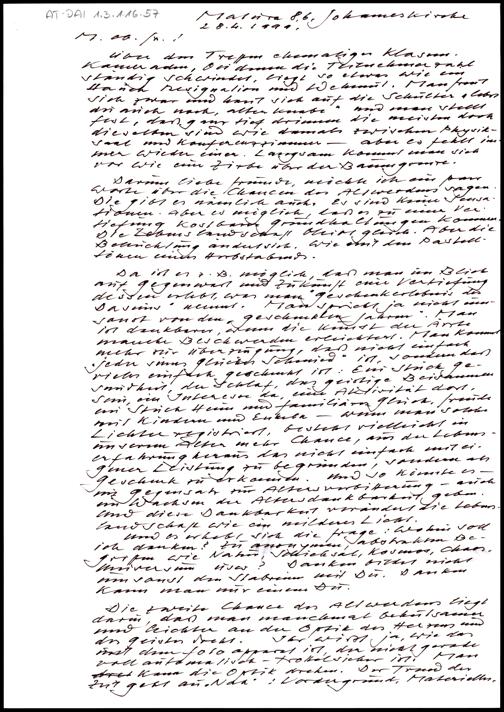 AT-DAI 1.3.1.16.57
Matura 8.6, Johanneskirche
28.4. 1990.
M. ob. Jn.!
Über den Treffen ehemaliger Klassen-
kameraden, bei denen die Teilnehmerzahl
ständig schwindet, liegt so etwas wie ein
Hauch Resignation und Wehmut. Man freut
sich zwar und haut sich auf die Schulter „lebst
du auch noch, alter Knabe" und man stellt
fest, daß ganz tief drinnen die meisten doch
dieselben sind wie damals zwischen Physik-
saal und Konferenzzimmer – aber es fehlt im-
mer wieder einer. Langsam kommt man sich
vor wie eine Zirbe über der Baumgrenze.
Darum, liebe Freunde, möchte ich ein paar
Worte über die Chancen des Altwerdens sagen.
Die gibt es nämlich auch. Es sind keine Sensa-
tionen. Aber es möglich, daß es zu einer Ver-
tiefung kostbarer Grundhaltungen kommt.
Die Lebenslandschaft bleibt gleich. Aber die
Belichtung ändert sich. Wie mit den Pastell-
tönen eines Herbstabends.
Da ist es z. B. möglich, daß man im Blick
auf Gegenwart und Zukunft eine Vertiefung
dessen erlebt, was man "Geschenkerlebnis des
Daseins" nennt. Man spricht ja nicht um-
sonst von den „geschenkten Jahren". Man
ist dankbarer, wenn die Kunst der Ärzte
manche Beschwerden erleichtert. Man kommt
mehr zur Überzeugung, daß nicht einfach
„jeder seines Glückes Schmied" ist, sondern daß
vieles einfach geschenkt ist: Ein Stück Ge-
sundheit, der Schlaf, das geistige Beisammen
sein, ein Interesse da, eine Aktivität dort,
ein Stück Heim und familiäres Glück, Freude
mit Kindern und Enkeln – wenn man solche
Lichter registriert, besteht vielleicht in
unserem Alter mehr Chance, aus der Lebens-
erfahrung heraus das nicht einfach mit ei-
gener Leistung zu begründen, sondern als
Geschenk zu erkennen. Und so könnte es –
im Gegensatz zur Altersverbitterung – auch
ein Wachsen der Altersdankbarkeit geben.
Und diese Dankbarkeit verändert die Lebens-
landschaft wie ein milderes Licht.
Und es erhebt sich die Frage: Wohin soll
ich danken? Zu anonymen, abstrakten Be-
griffen wie Natur, Schicksal, Kosmos, Chaos,
Universum usw.? Danken bildet nicht
umsonst den Stabreim mit Du. Danken
kann man nur einem Du.
Die zweite Chance des Altwerdens liegt
darin, daß man manchmal behutsamer
und leichter an der Optik des Herzens und
des Geistes dreht. Ihr wißt ja, wie das
mit dem Fotoapparat ist, der nicht gerade
vollautomatisch-trottelsicher ist: Man
kann die Optik drehen. Der Trend der
Zeit geht auf „Nah": Vordergrund, Materielles,